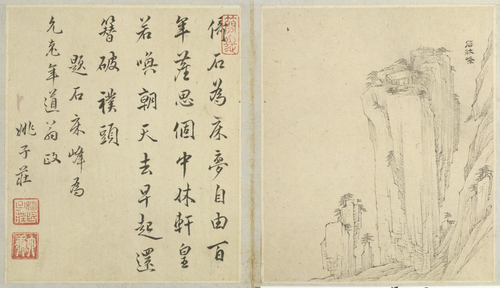 石床峰
倚石為床夢自由百
年塵思個中休軒皇
若喚朝天去早起還
簪破襆頭
題石床峰為
年道翁政
姚子莊